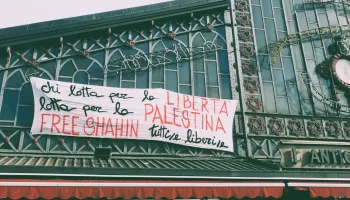 chi lotta per la LIBERTA
lotta per la PALESTINA
FREE SHAHIN tuttɜ liberɜ
ANTIC